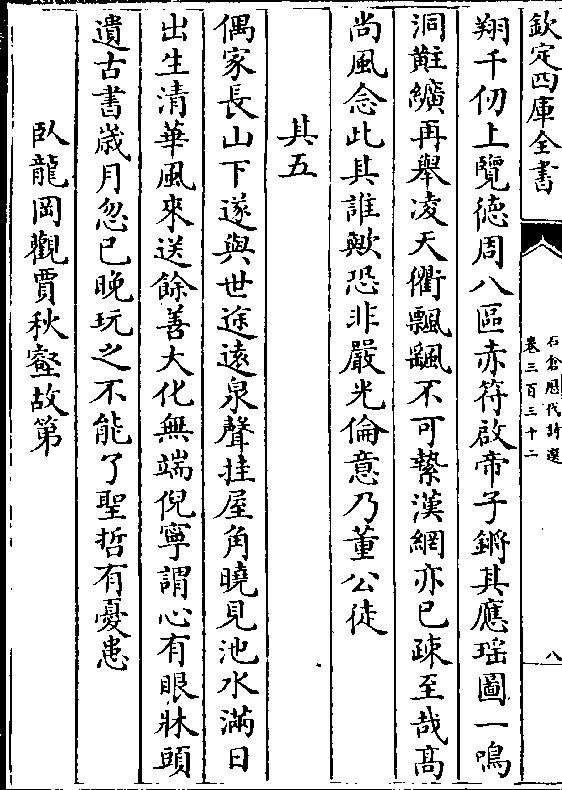 欽定四庫全書
石倉歴代詩選
卷三百三十二
八
翔千仞上覽德周八區赤符啟帝子鏘其應瑤圖一鳴
洞黈纊再舉凌天衢飄飄不可縶漢網亦已疎至哉髙
尚風念此其誰歟恐非嚴光倫意乃董公徒
其五
偶家長山下遂與世途遠泉聲挂屋角曉見池水滿日
出生清華風來送餘善大化無端倪寧謂心有眼牀頭
遺古書歳月忽已晚玩之不能了聖哲有憂患
臥龍岡觀賈秋壑故第